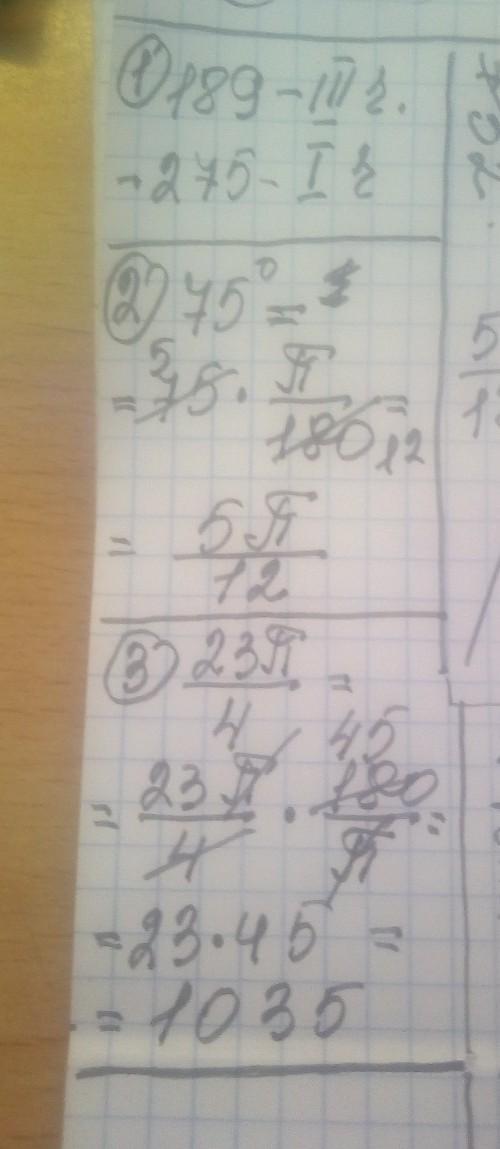 ① 189 - III г.
-275 - I г
② 75° =
= 75 · π/180 =
5
12
= 5π/12
③ 23π/4 =
= 23π/4 · 180/π =
45
= 23·45 =
= 1035
5